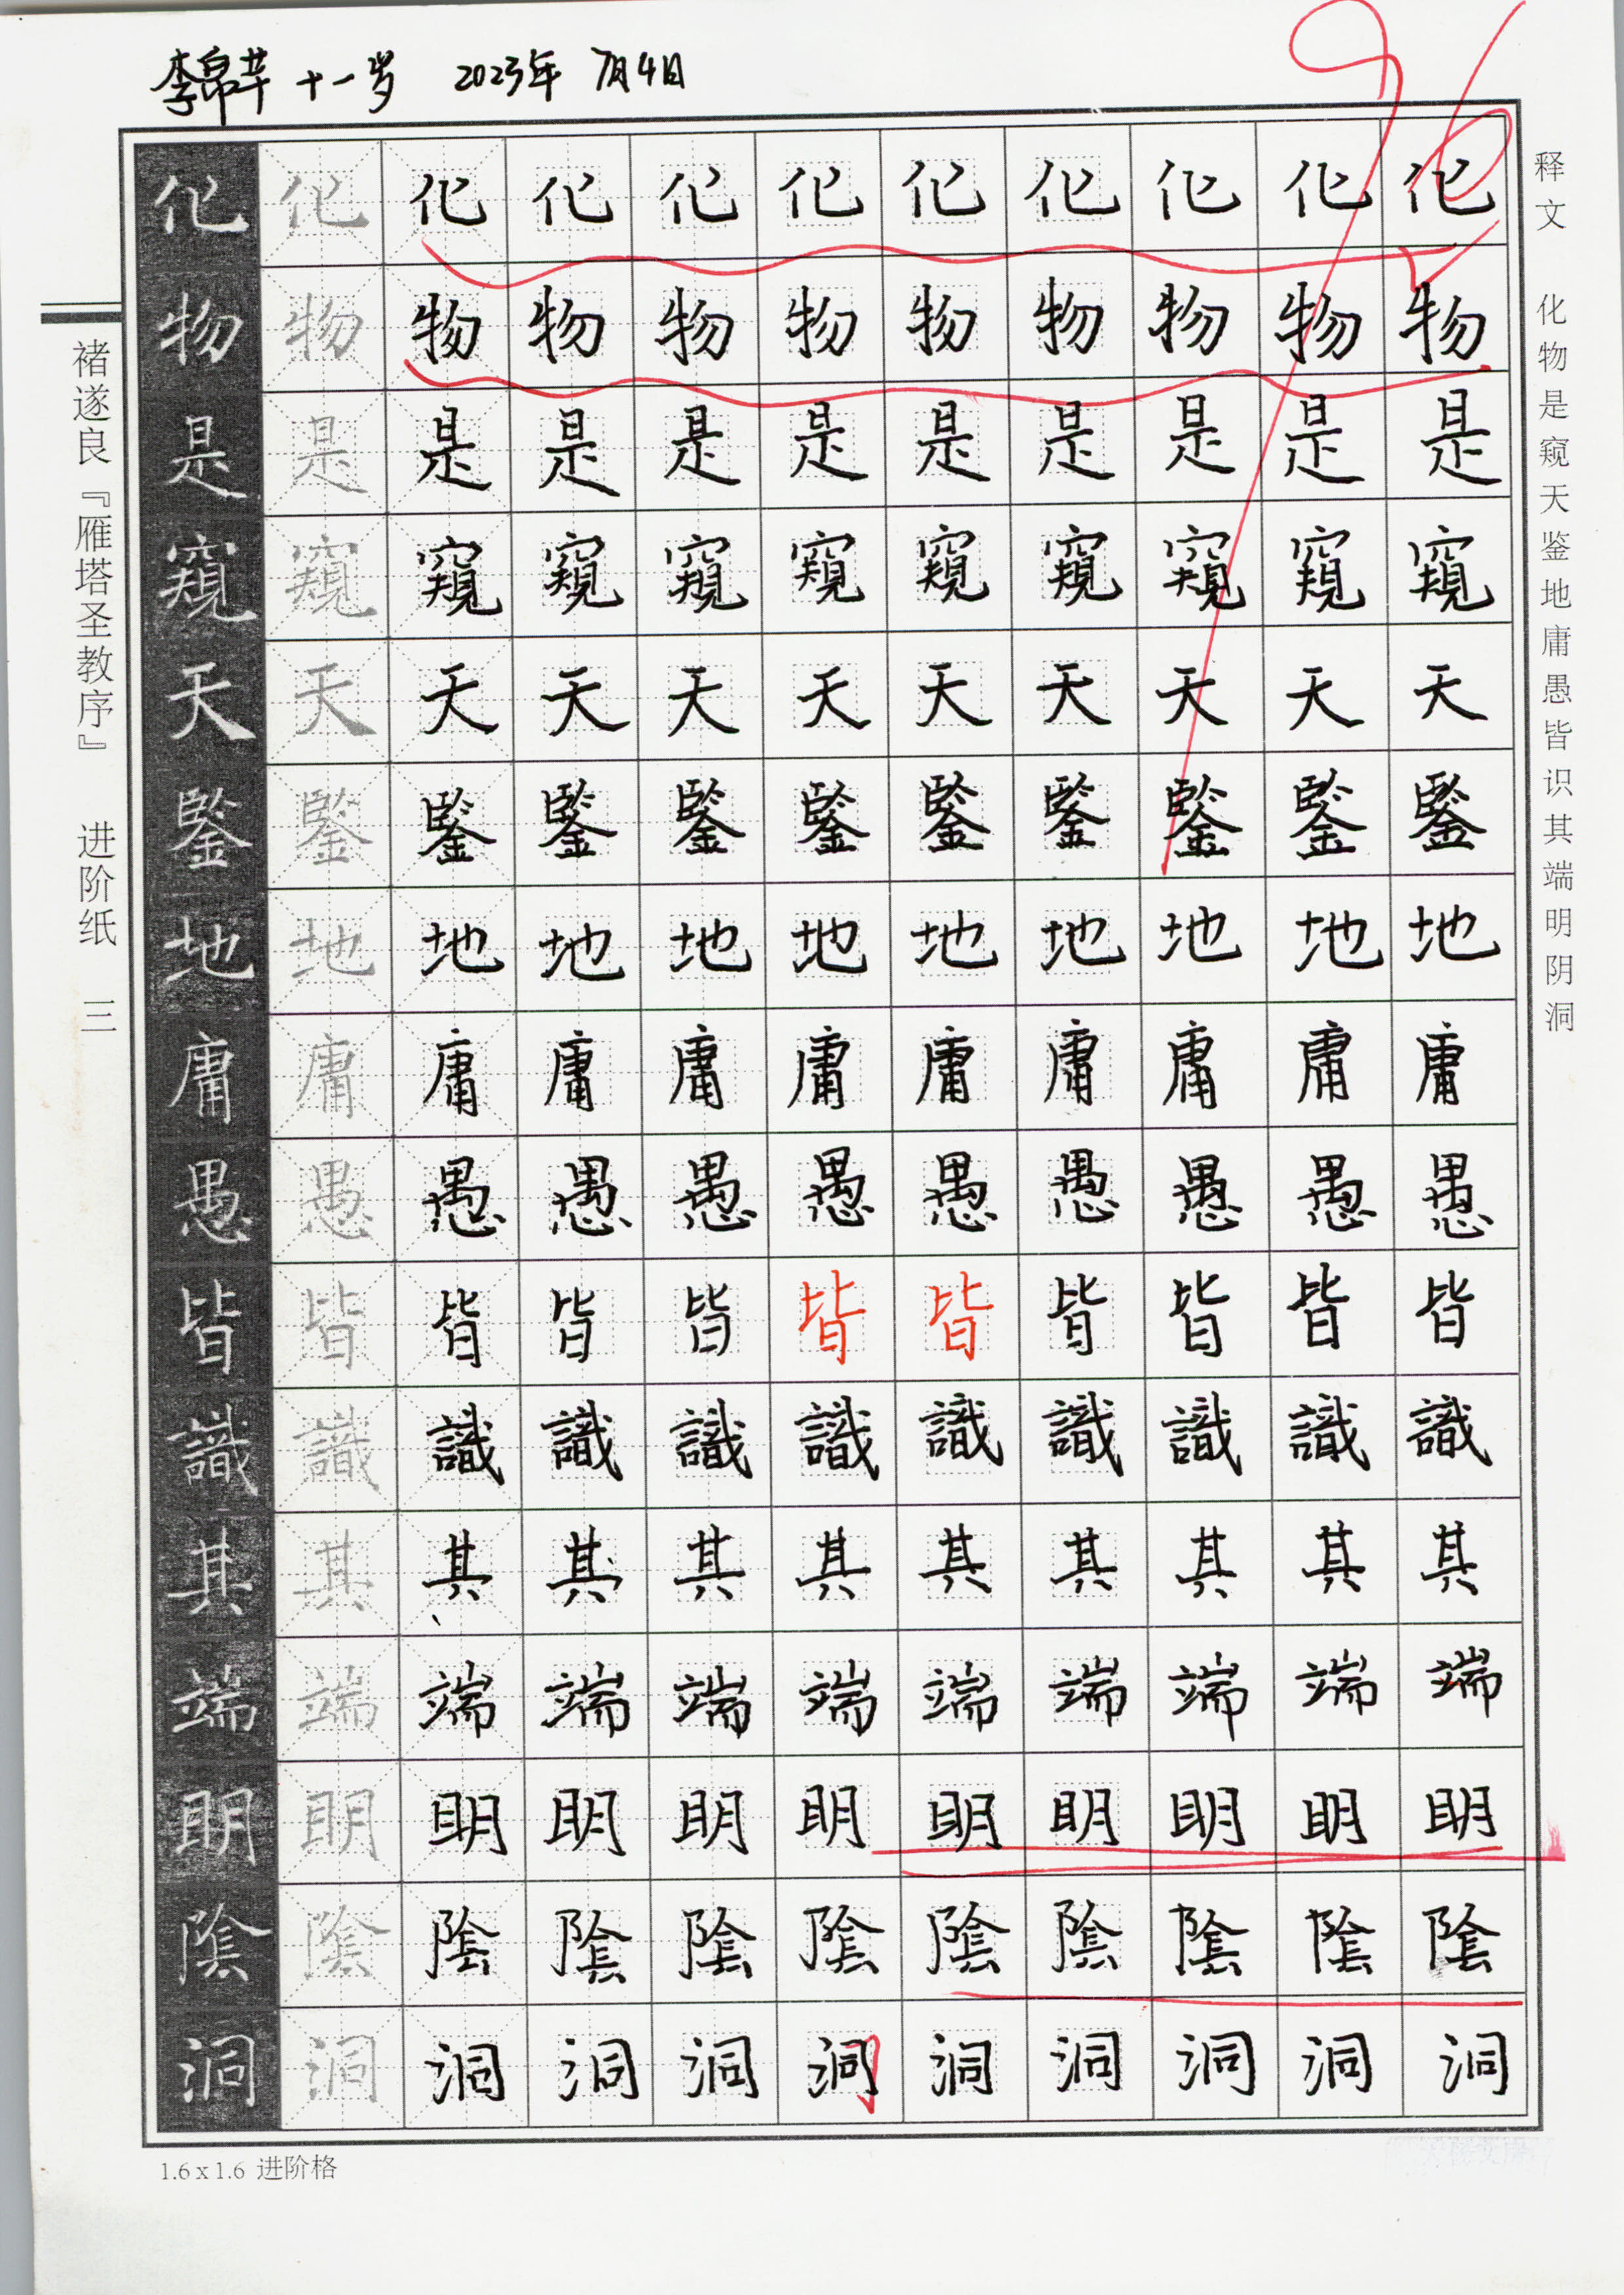 李帛芊 十一岁 2023年 7月4日
化化化化化化化化化化化
物物物物物物物物物物物
是是是是是是是是是是是
窺窺窺窺窺窺窺窺窺窺窺
天天天天天天天天天天天
鋻鋻鋻鋻鋻鋻鋻鋻鋻鋻鋻
地地地地地地地地地地地
庸庸庸庸庸庸庸庸庸庸庸
愚愚愚愚愚愚愚愚愚愚愚
皆皆皆皆皆皆皆皆皆皆皆
識識識識識識識識識識識
其其其其其其其其其其其
端端端端端端端端端端端
明明明明明明明明明明明
陰陰陰陰陰陰陰陰陰陰陰
洞洞洞洞洞洞洞洞洞洞洞
释文 化物是窥天鉴地庸愚皆识其端明阴洞
褚遂良『雁塔圣教序』 进阶纸 三
1.6x1.6 进阶格